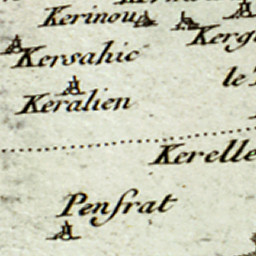 Kerinou
Kersahic
le
Keralien
Kerelle
Pensrat